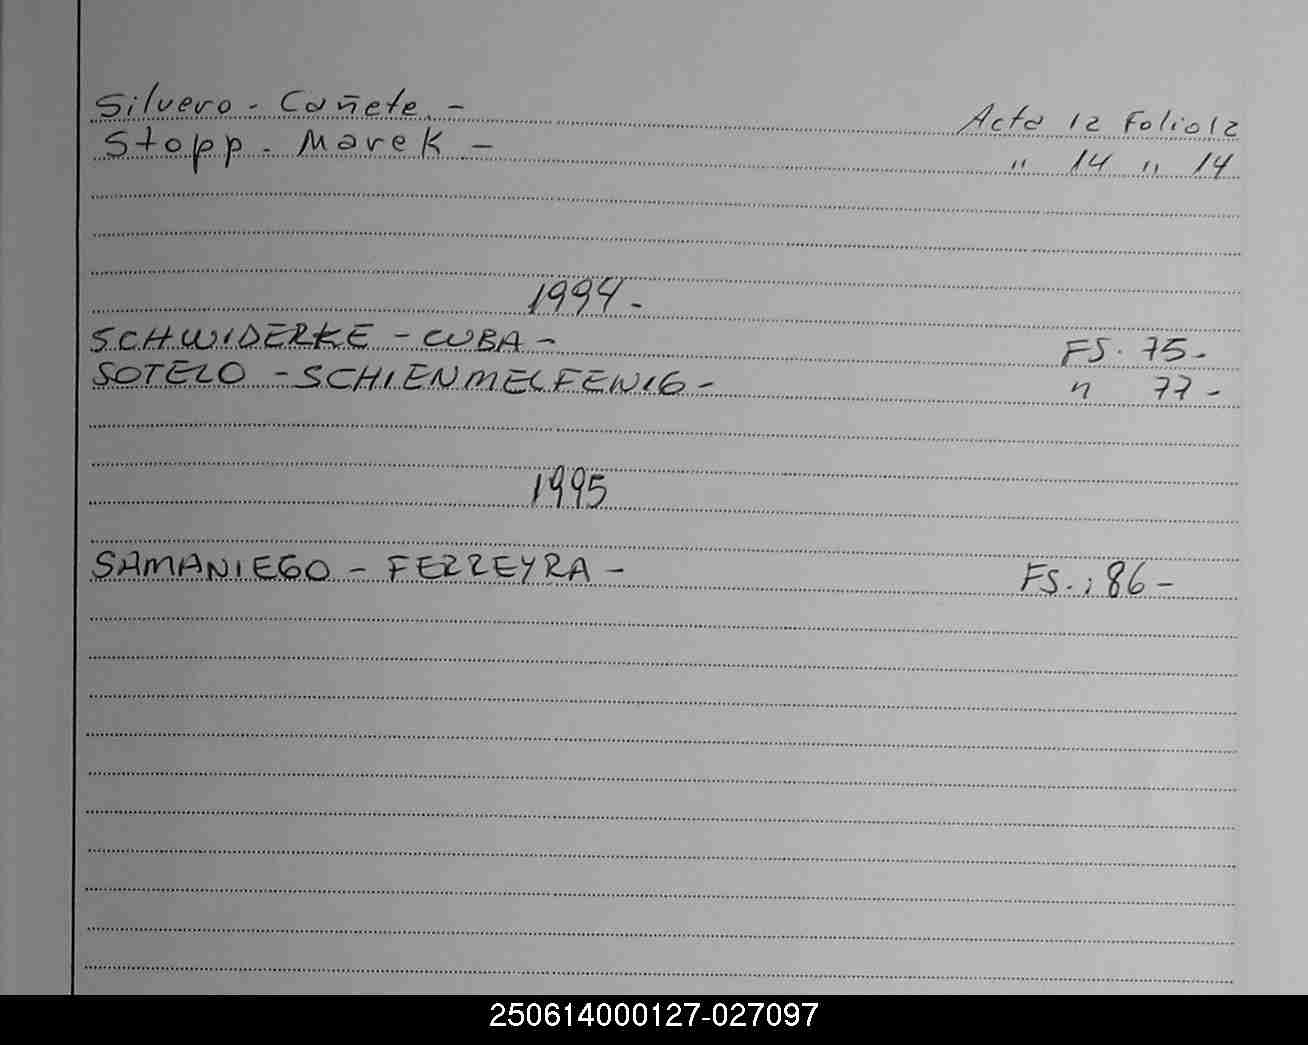 Silvero - Cañete. - Acta 12 Folio 12
Stopp - Marek - " 14 " 14
1994 -
SCHWIDERKE - CUBA - FS. 75 -
SOTELO - SCHIENMELFENIG - " 77 -
1995
SAMANIEGO - FERREYRA - FS.: 86 -
250614000127-027097